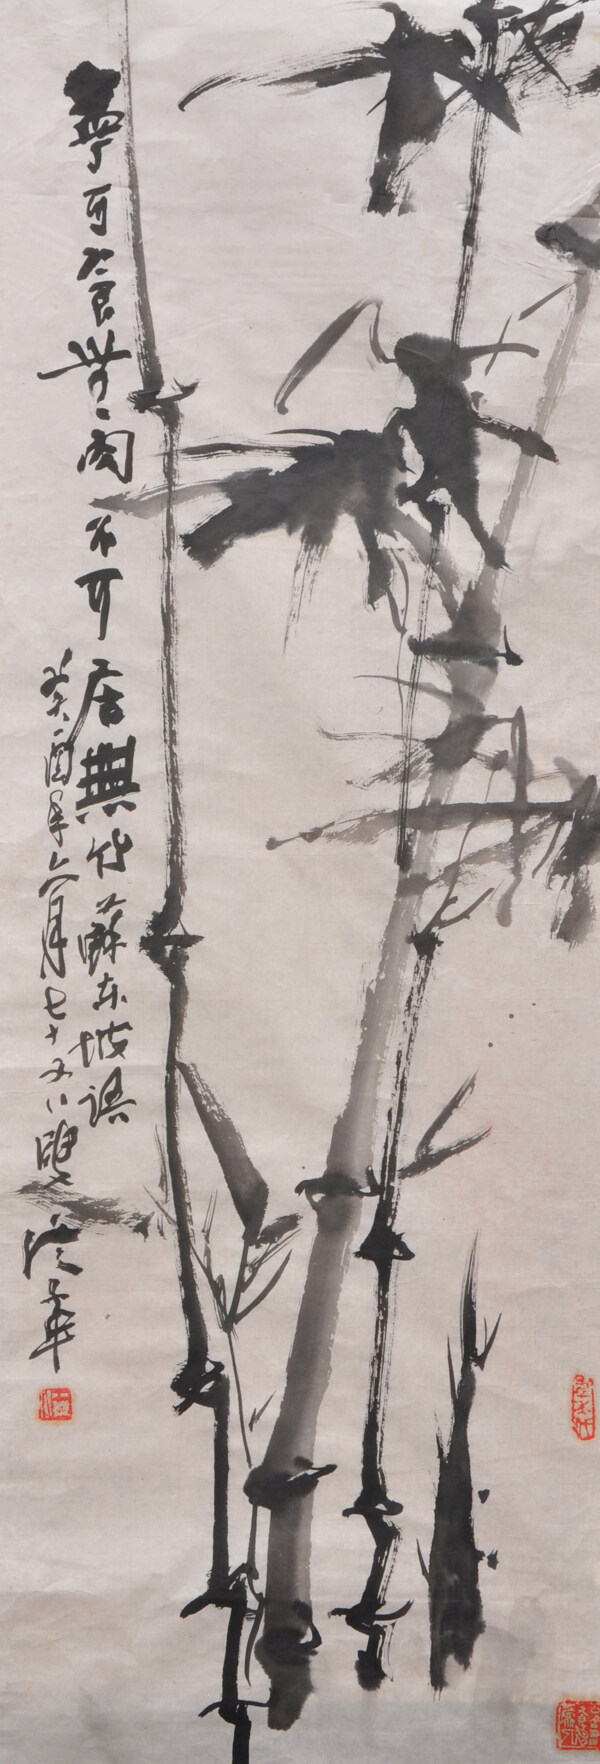 寧可食無肉不可居無竹蘇东坡語
癸酉年六月七十又八叟